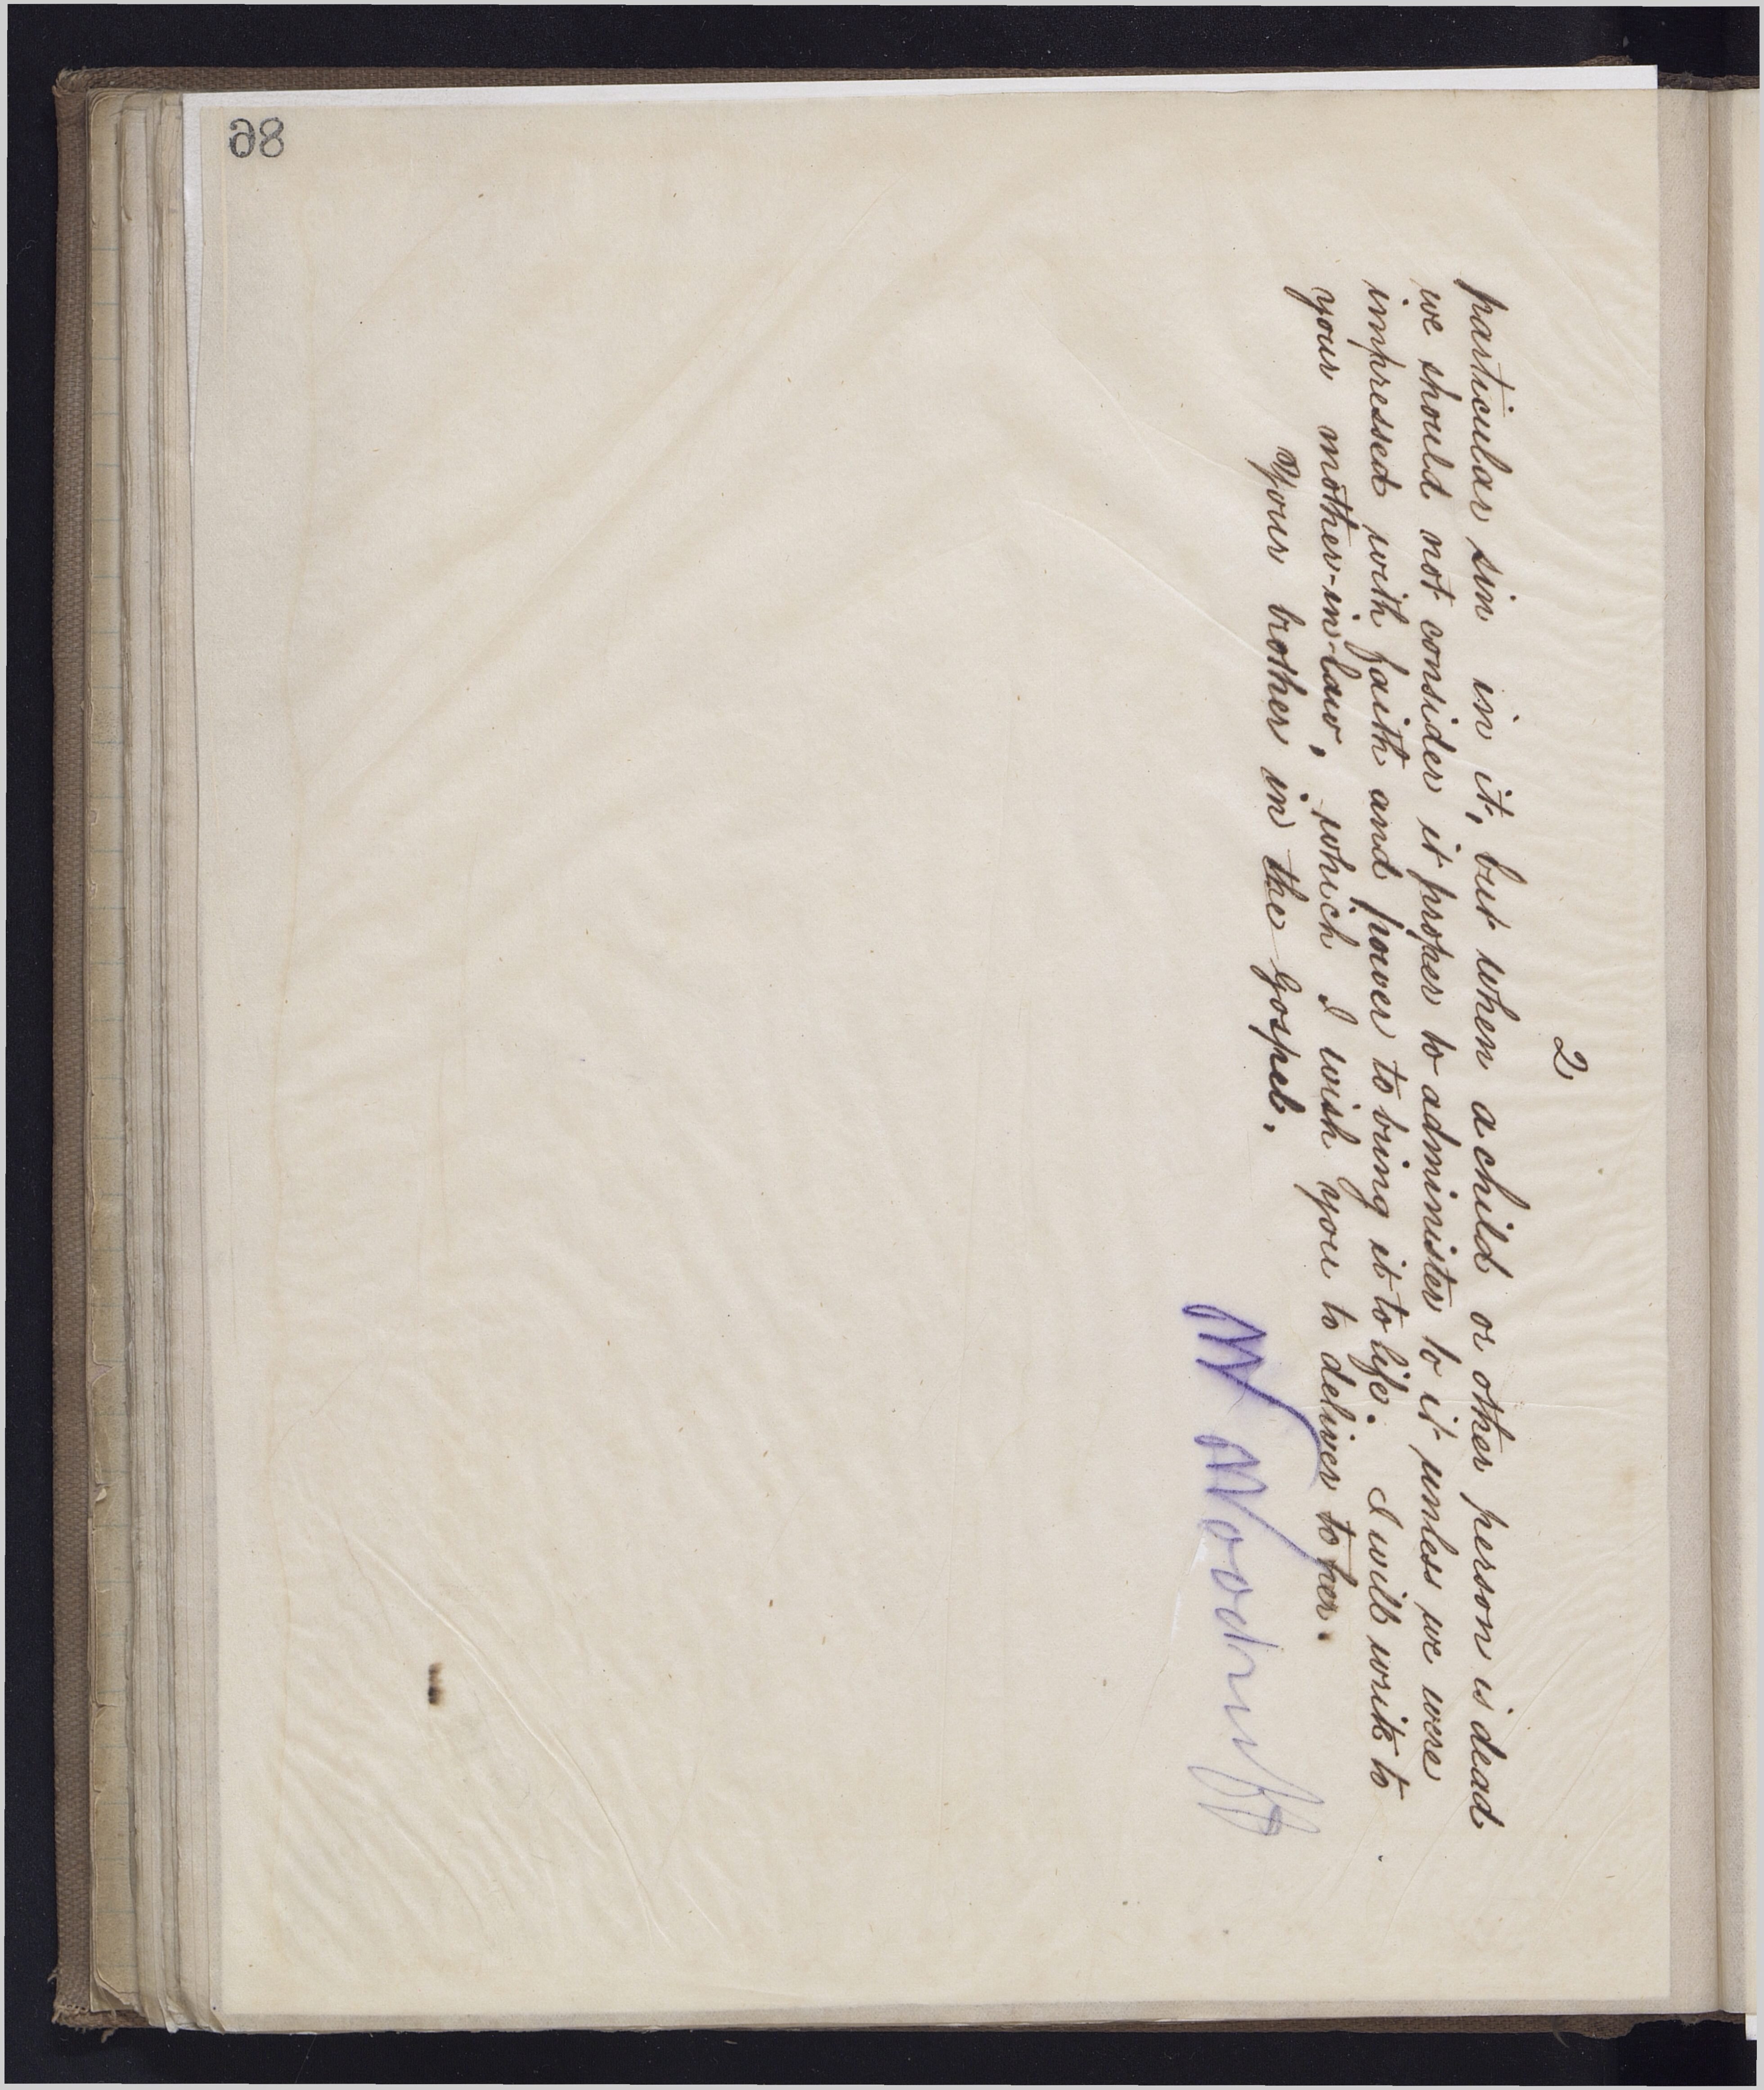 86
2
particular sin in it, but when a child or other person is dead
we should not consider it proper to administer to it unless we were
impressed with faith and power to bring it to life. I will write to
your mother-in-law, which I wish you to deliver to her.
Your brother in the gospel.
W Woodruff